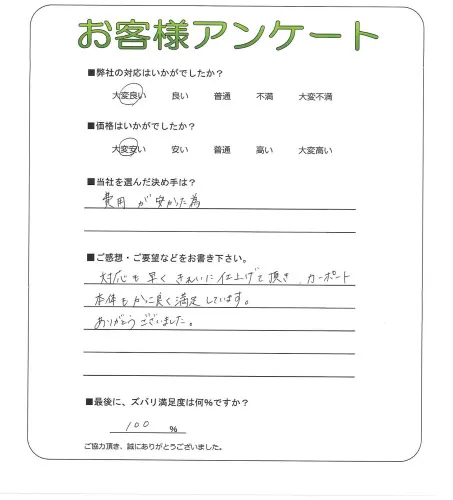 お客様アンケート
■弊社の対応はいかがでしたか？
大変良い 良い 普通 不満 大変不満
■価格はいかがでしたか？
大変安い 安い 普通 高い 大変高い
■当社を選んだ決め手は？
費用が安かった為
■ご感想・ご要望などをお書き下さい。
対応も早くきれいに仕上げて頂き、カーポート
本体もかっこ良く満足しています。
ありがとうございました。
■最後に、ズバリ満足度は何%ですか？
100 %
ご協力頂き、誠にありがとうございました。